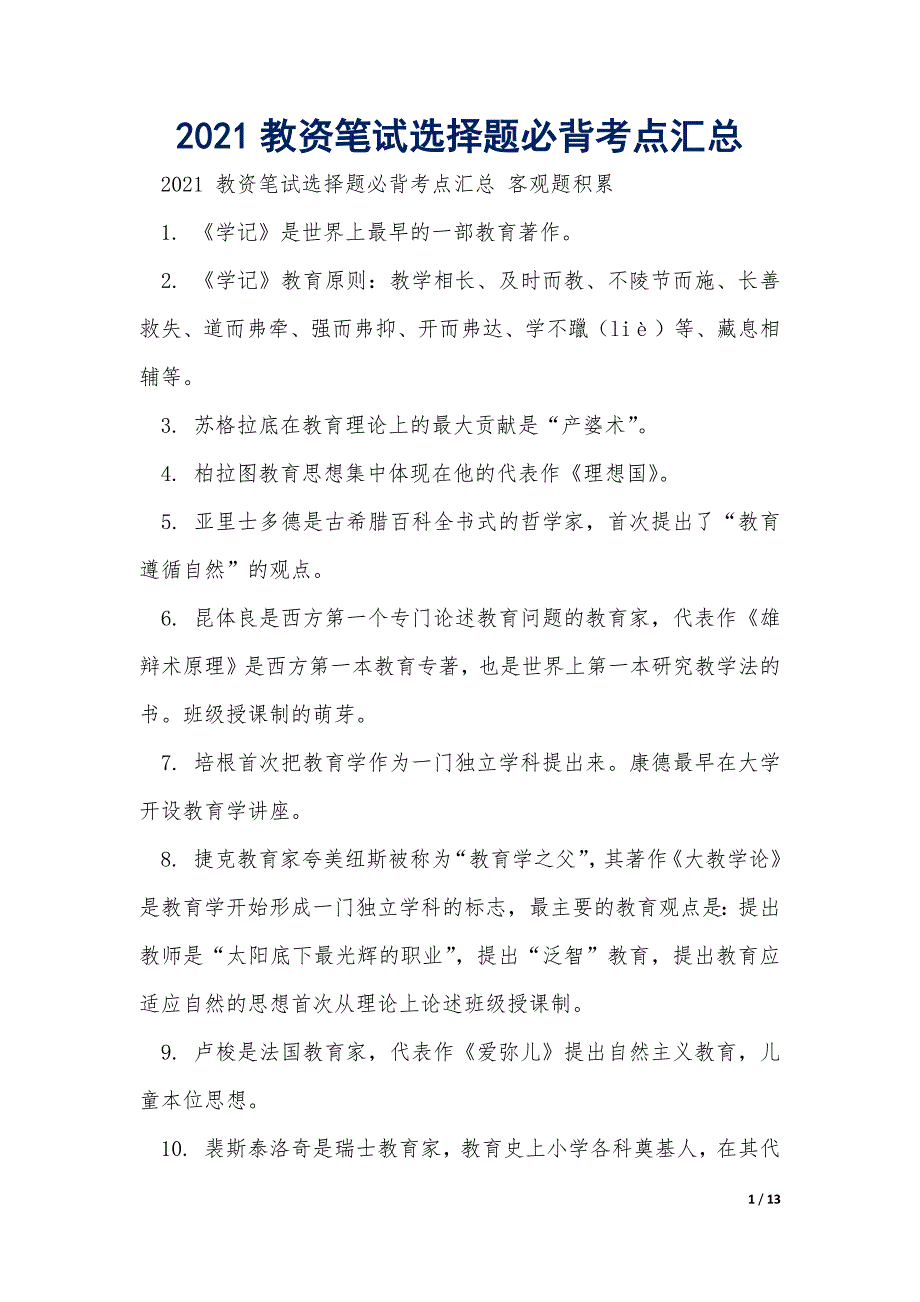 2021 教资笔试选择题必背考点汇总
2021 教资笔试选择题必背考点汇总 客观题积累
1. 《学记》是世界上最早的一部教育著作。
2. 《学记》教育原则：教学相长、及时而教、不陵节而施、长善
救失、道而弗牵、强而弗抑、开而弗达、学不躐（liè）等、藏息相
辅等。
3. 苏格拉底在教育理论上的最大贡献是“产婆术”。
4. 柏拉图教育思想集中体现在他的代表作《理想国》。
5. 亚里士多德是古希腊百科全书式的哲学家，首次提出了“教育
遵循自然”的观点。
6. 昆体良是西方第一个专门论述教育问题的教育家，代表作《雄
辩术原理》是西方第一本教育专著，也是世界上第一本研究教学法的
书。班级授课制的萌芽。
7. 培根首次把教育学作为一门独立学科提出来。康德最早在大学
开设教育学讲座。
8. 捷克教育家夸美纽斯被称为“教育学之父”，其著作《大教学论》
是教育学开始形成一门独立学科的标志，最主要的教育观点是：提出
教师是“太阳底下最光辉的职业”，提出“泛智”教育，提出教育应
适应自然的思想首次从理论上论述班级授课制。
9. 卢梭是法国教育家，代表作《爱弥儿》提出自然主义教育，儿
童本位思想。
10. 裴斯泰洛奇是瑞士教育家，教育史上小学各科奠基人，在其代
1 / 13